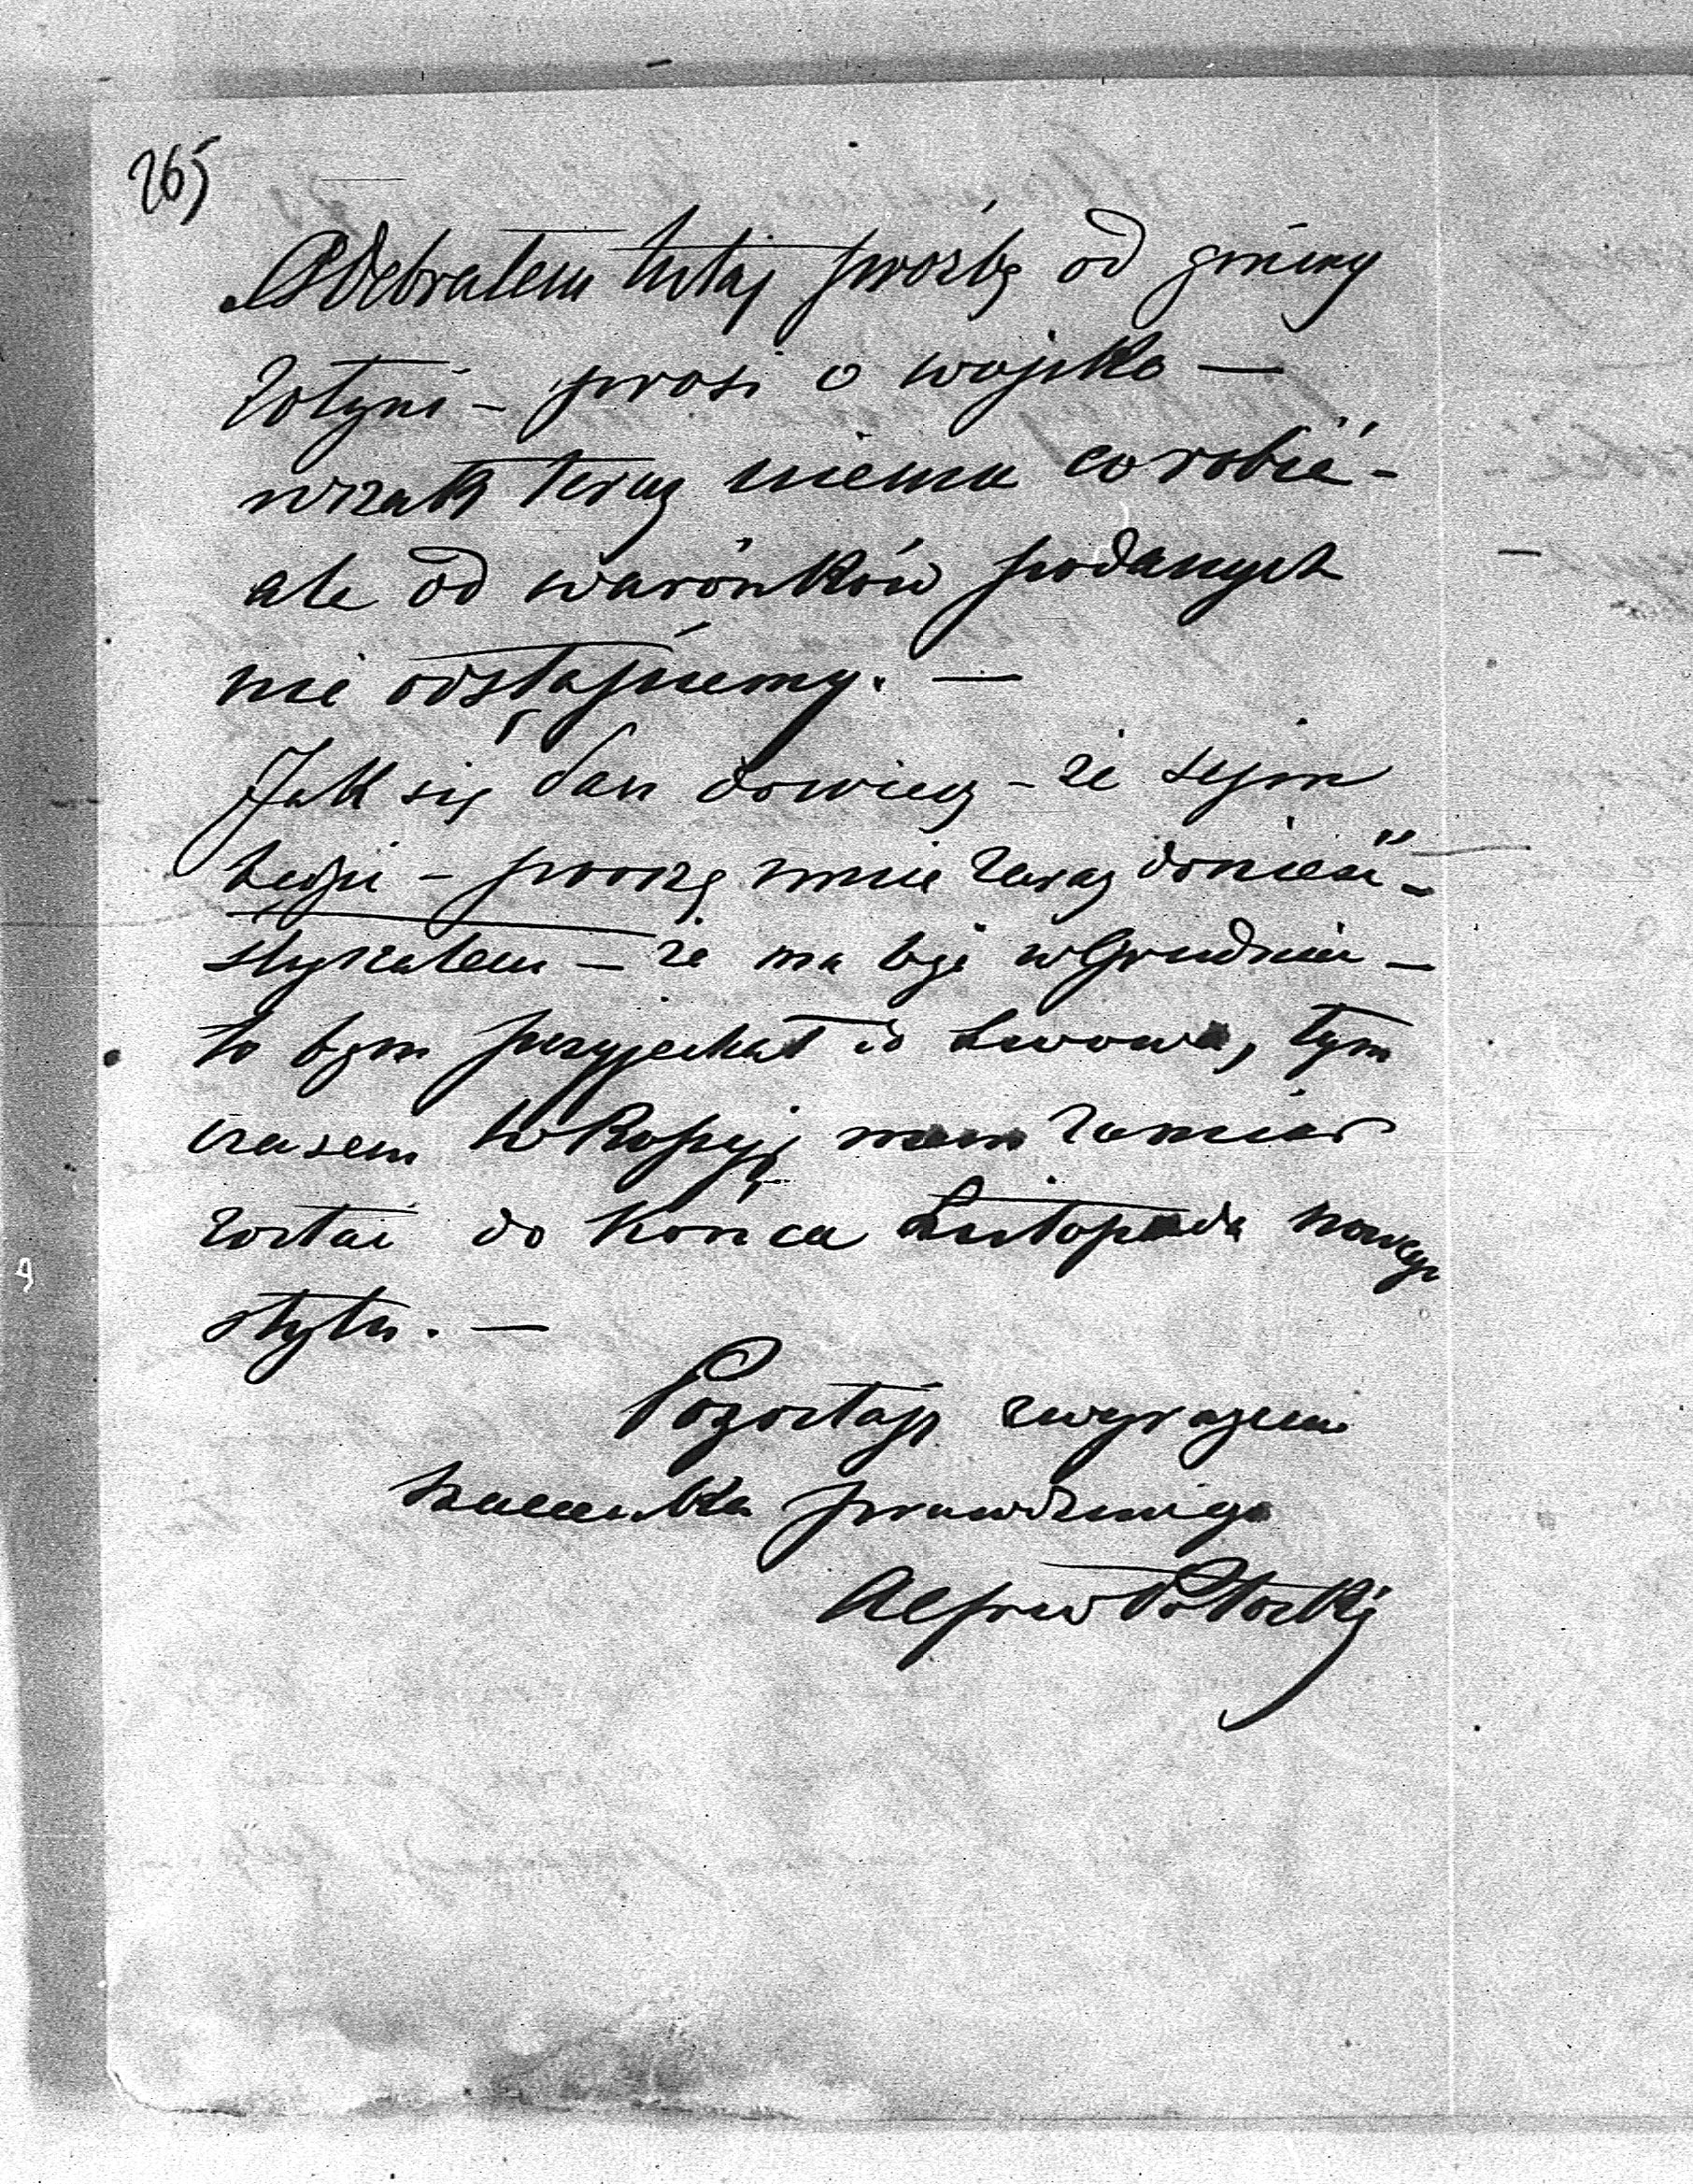 265
Odebrałem tutaj prośbę od gminy
Żołyni – prosi o wojsko —
wszak teraz niema co robić –
ale od warónków podanych
nie odstąpiemy. —
Jak się Pan dowiesz – że sejm
będzie – proszę mnie zaraz donieść –
słyszałem – że ma być w Grudniu –
to bym przyjechał do Lwowa, tym
czasem w Rosyji mam zamiar
zostać do końca Listopada nowego
stylu. —
Pozostaję z wyrazem
szacunku prawdziwego
Alfred Potocki